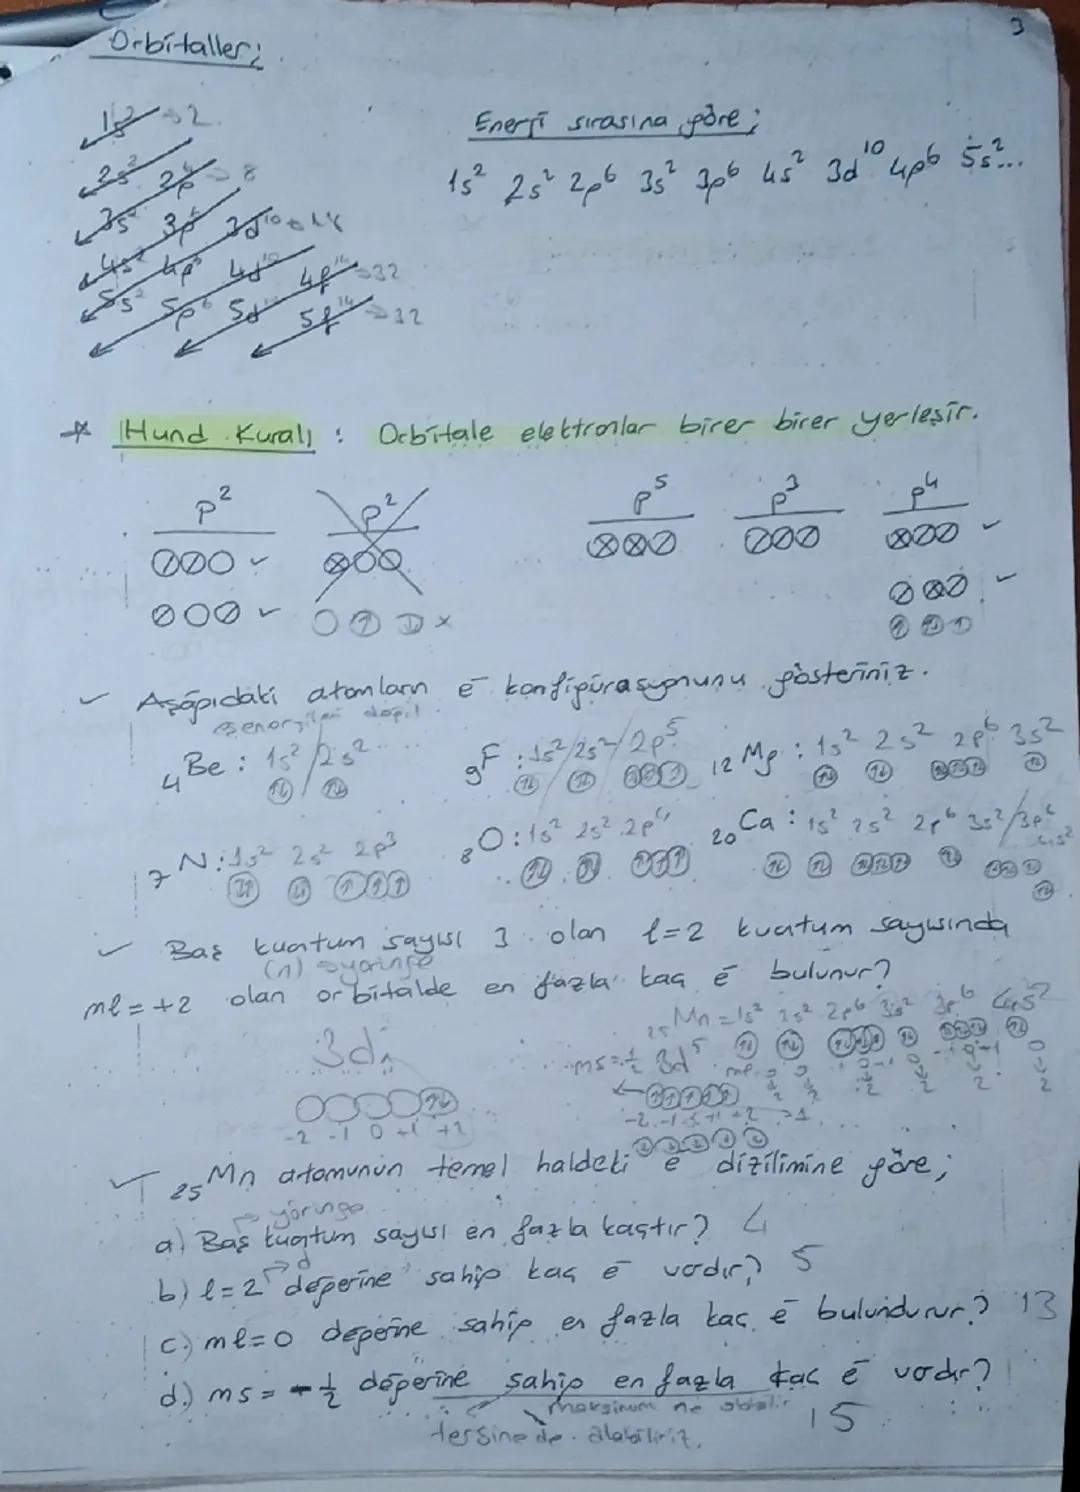 3
Orbitaller;
1s² → 2
2s² 2p⁶ → 8
3s² 3p⁶ 3d¹⁰ → 18
4s² 4p⁶ 4d¹⁰ 4f¹⁴ → 32
5s² 5p⁶ 5d¹⁰ 5f¹⁴ → 32
Enerji sırasına göre;
1s² 2s² 2p⁶ 3s² 3p⁶ 4s² 3d¹⁰ 4p⁶ 5s²...
* Hund Kuralı : Orbitale elektronlar birer birer yerleşir.
p² p² p⁵ p³ p⁴
✓ Aşağıdaki atomların e⁻ konfigürasyonunu gösteriniz.
eşenerjileri değil
₄Be : 1s² / 2s² ₉F : 1s² / 2s² / 2p⁵ ₁₂Mg : 1s² 2s² 2p⁶ 3s²
₇N : 1s² 2s² 2p³ ₈O : 1s² 2s² 2p⁴ ₂₀Ca : 1s² 2s² 2p⁶ 3s² / 3p⁶ 4s²
✓ Baş kuantum sayısı 3 olan l=2 kuantum sayısında
(n) → yörünge
ml = +2 olan orbitalde en fazla kaç e⁻ bulunur?
3d
-2 -1 0 +1 +2
₂₅Mn = 1s² 2s² 2p⁶ 3s² 3p⁶ 4s²
ms = ½ 3d⁵
-2 -1 0 +1 +2
✓ ₂₅Mn atomunun temel haldeki e⁻ dizilimine göre;
→ yörünge
a) Baş kuantum sayısı en fazla kaçtır? 4
→ d
b) l=2 değerine sahip kaç e⁻ vardır? 5
c) ml=0 değerine sahip en fazla kaç e⁻ bulundurur? 13
d) ms = -½ değerine sahip en fazla kaç e⁻ vardır?
maksimum ne olabilir 15
tersine de alabiliriz.